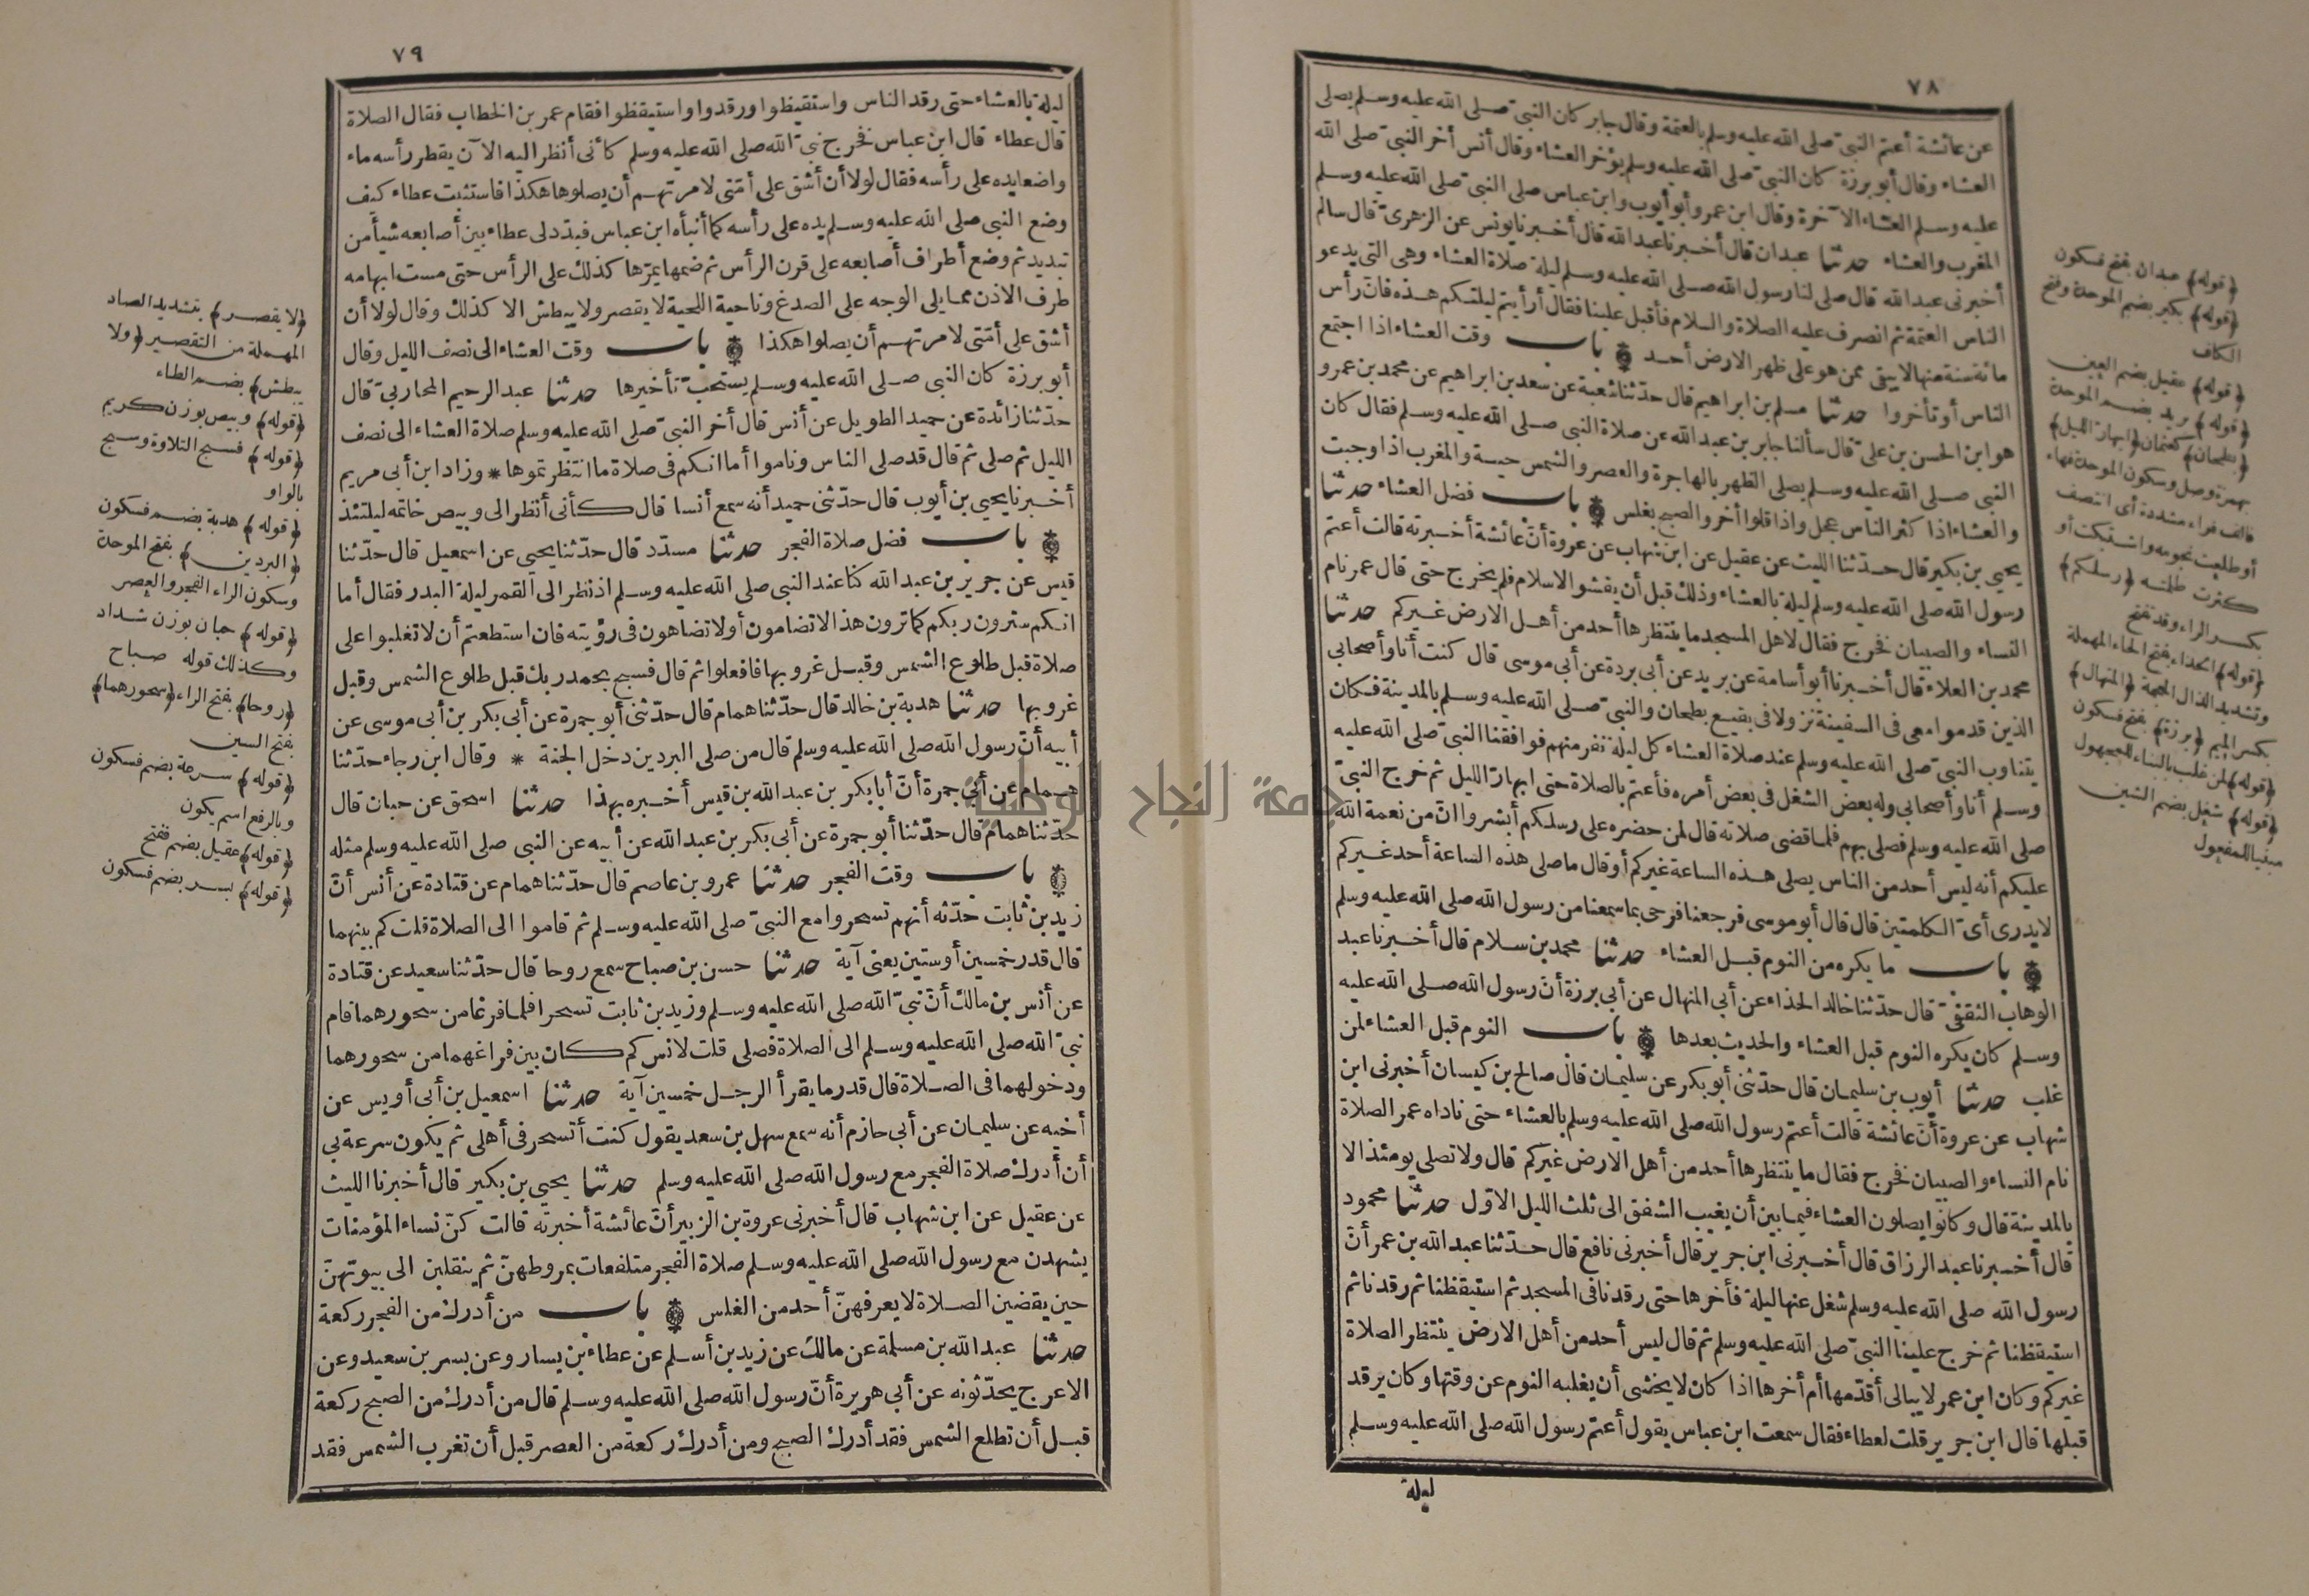 ٧٨
عن عائشة أعتم النبيّ صلى الله عليه وسلم بالعتمة وقال جابر كان النبيّ صلى الله عليه وسلم يصلى
العشاء وقال أبو برزة كان النبيّ صلى الله عليه وسلم يؤخر العشاء وقال أنس أخر النبيّ صلى الله
عليه وسلم العشاء الآخرة وقال ابن عمر وأبو أيوب وابن عباس صلى النبيّ صلى الله عليه وسلم
المغرب والعشاء حدثنا عبدان قال أخبرنا عبد الله قال أخبرنا يونس عن الزهرىّ قال سالم
أخبرنى عبد الله قال صلى لنا رسول الله صلى الله عليه وسلم ليلة صلاة العشاء وهى التى يدعو
الناس العتمة ثم انصرف عليه الصلاة والسلام فأقبل علينا فقال أرأيتم ليلتكم هذه فان رأس
مائة سنة منها لا يبقى ممن هو على ظهر الارض أحد باب وقت العشاء اذا اجتمع
الناس أو تأخروا حدثنا مسلم بن ابراهيم قال حدّثنا شعبة عن سعد بن ابراهيم عن محمد بن عمرو
هو ابن الحسن بن علىّ قال سألنا جابر بن عبد الله عن صلاة النبى صلى الله عليه وسلم فقال كان
النبى صلى الله عليه وسلم يصلى الظهر بالهاجرة والعصر والشمس حية والمغرب اذا وجبت
والعشاء اذا كثر الناس عجل واذا قلوا أخر والصبح بغلس باب فضل العشاء حدثنا
يحيى بن بكير قال حدّثنا الليث عن عقيل عن ابن شهاب عن عروة أنّ عائشة أخبرته قالت أعتم
رسول الله صلى الله عليه وسلم ليلة بالعشاء وذلك قبل أن يفشو الاسلام فلم يخرج حتى قال عمر نام
النساء والصبيان فخرج فقال لاهل المسجد ما ينتظرها أحد من أهل الارض غيركم حدثنا
محمد بن العلاء قال أخبرنا أبو أسامة عن بريد عن أبى بردة عن أبى موسى قال كنت أنا وأصحابى
الذين قدموا معى فى السفينة نزولا فى بقيع بطحان والنبىّ صلى الله عليه وسلم بالمدينة فكان
يتناوب النبىّ صلى الله عليه وسلم عند صلاة العشاء كل ليلة نفر منهم فوافقنا النبىّ صلى الله عليه
وسلم أنا وأصحابى وله بعض الشغل فى بعض أمره فأعتم بالصلاة حتى ابهارّ الليل ثم خرج النبىّ
صلى الله عليه وسلم فصلى بهم فلما قضى صلاته قال لمن حضره على رسلكم أبشروا انّ من نعمة الله
عليكم أنه ليس أحد من الناس يصلى هذه الساعة غيركم أو قال ما صلى هذه الساعة أحد غيركم
لا يدرى أىّ الكلمتين قال قال أبو موسى فرجعنا فرحى بما سمعنا من رسول الله صلى الله عليه وسلم
باب ما يكره من النوم قبل العشاء حدثنا محمد بن سلام قال أخبرنا عبد
الوهاب الثقفىّ قال حدّثنا خالد الحذاء عن أبى المنهال عن أبى برزة أنّ رسول الله صلى الله عليه
وسلم كان يكره النوم قبل العشاء والحديث بعدها باب النوم قبل العشاء لمن
غلب حدثنا أيوب بن سليمان قال حدّثنى أبو بكر عن سليمان قال صالح بن كيسان أخبرنى ابن
شهاب عن عروة أنّ عائشة قالت أعتم رسول الله صلى الله عليه وسلم بالعشاء حتى ناداه عمر الصلاة
نام النساء والصبيان فخرج فقال ما ينتظرها أحد من أهل الارض غيركم قال ولا تصلى يومئذ الا
بالمدينة قال وكانوا يصلون العشاء فيما بين أن يغيب الشفق الى ثلث الليل الاوّل حدثنا محمود
قال أخبرنا عبد الرزاق قال أخبرنى ابن جريج قال أخبرنى نافع قال حدّثنا عبد الله بن عمر أنّ
رسول الله صلى الله عليه وسلم شغل عنها ليلة فأخرها حتى رقدنا فى المسجد ثم استيقظنا ثم رقدنا ثم
استيقظنا ثم خرج علينا النبىّ صلى الله عليه وسلم ثم قال ليس أحد من أهل الارض ينتظر الصلاة
غيركم وكان ابن عمر لا يبالى أقدّمها أم أخرها اذا كان لا يخشى أن يغلبه النوم عن وقتها وكان يرقد
قبلها قال ابن جريج قلت لعطاء فقال سمعت ابن عباس يقول أعتم رسول الله صلى الله عليه وسلم
ليلة
﴿قوله﴾ عبدان بفتح فسكون
﴿قوله﴾ بكير بضم الموحدة وفتح
الكاف
﴿قوله﴾ عقيل بضم العين
﴿قوله﴾ بريد بضم الموحدة
﴿بطحان﴾ كعثمان ﴿ابهارّ الليل﴾
بهمزة وصل وسكون الموحدة فهاء
فألف فراء مشددة أى انتصف
أو طلعت نجومه واشتبكت أو
كثرت ظلمته ﴿رسلكم﴾
بكسر الراء وقد تفتح
﴿قوله﴾ الحذاء بفتح الحاء المهملة
وتشديد الذال المعجمة ﴿المنهال﴾
بكسر الميم ﴿برزة﴾ بفتح فسكون
﴿قوله﴾ لمن غلب بالبناء للمجهول
﴿قوله﴾ شغل بضم الشين
مبنيا للمفعول
٧٩
ليلة بالعشاء حتى رقد الناس واستيقظوا ورقدوا واستيقظوا فقام عمر بن الخطاب فقال الصلاة
قال عطاء قال ابن عباس فخرج نبىّ الله صلى الله عليه وسلم كأنى أنظر اليه الآن يقطر رأسه ماء
واضعا يده على رأسه فقال لولا أن أشق على أمّتى لامرتهم أن يصلوها هكذا فاستثبت عطاء كيف
وضع النبى صلى الله عليه وسلم يده على رأسه كما أنبأه ابن عباس فبدّد لى عطاء بين أصابعه شيأ من
تبديد ثم وضع أطراف أصابعه على قرن الرأس ثم ضمها يمرّها كذلك على الرأس حتى مست ابهامه
طرف الاذن مما يلى الوجه على الصدغ وناحية اللحية لا يقصر ولا يبطش الا كذلك وقال لولا أن
أشق على أمّتى لامرتهم أن يصلوا هكذا باب وقت العشاء الى نصف الليل وقال
أبو برزة كان النبى صلى الله عليه وسلم يستحبّ تأخيرها حدثنا عبد الرحيم المحاربىّ قال
حدّثنا زائدة عن حميد الطويل عن أنس قال أخر النبىّ صلى الله عليه وسلم صلاة العشاء الى نصف
الليل ثم صلى ثم قال قد صلى الناس وناموا أما انكم فى صلاة ما انتظرتموها * وزاد ابن أبى مريم
أخبرنا يحيى بن أيوب قال حدّثنى حميد أنه سمع أنسا قال كأنى أنظر الى وبيص خاتمه ليلتئذ
باب فضل صلاة الفجر حدثنا مسدّد قال حدّثنا يحيى عن اسمعيل قال حدّثنا
قيس عن جرير بن عبد الله كنا عند النبى صلى الله عليه وسلم اذ نظر الى القمر ليلة البدر فقال أما
انكم سترون ربكم كما ترون هذا لا تضامون أو لا تضاهون فى رؤيته فان استطعتم أن لا تغلبوا على
صلاة قبل طلوع الشمس وقبل غروبها فافعلوا ثم قال فسبح بحمد ربك قبل طلوع الشمس وقبل
غروبها حدثنا هدبة بن خالد قال حدّثنا همام قال حدّثنى أبو جمرة عن أبى بكر بن أبى موسى عن
أبيه أنّ رسول الله صلى الله عليه وسلم قال من صلى البردين دخل الجنة * وقال ابن رجاء حدّثنا
همام عن أبى جمرة أنّ أبا بكر بن عبد الله بن قيس أخبره بهذا حدثنا اسحق عن حبان قال
حدّثنا همام قال حدّثنا أبو جمرة عن أبى بكر بن عبد الله عن أبيه عن النبى صلى الله عليه وسلم مثله
باب وقت الفجر حدثنا عمرو بن عاصم قال حدّثنا همام عن قتادة عن أنس أنّ
زيد بن ثابت حدّثه أنهم تسحروا مع النبىّ صلى الله عليه وسلم ثم قاموا الى الصلاة قلت كم بينهما
قال قدر خمسين أو ستين يعنى آية حدثنا حسن بن صباح سمع روحا قال حدّثنا سعيد عن قتادة
عن أنس بن مالك أنّ نبىّ الله صلى الله عليه وسلم وزيد بن ثابت تسحرا فلما فرغا من سحورهما قام
نبىّ الله صلى الله عليه وسلم الى الصلاة فصلى قلت لانس كم كان بين فراغهما من سحورهما
ودخولهما فى الصلاة قال قدر ما يقرأ الرجل خمسين آية حدثنا اسمعيل بن أبى أويس عن
أخيه عن سليمان عن أبى حازم أنه سمع سهل بن سعد يقول كنت أتسحر فى أهلى ثم يكون سرعة بى
أن أدرك صلاة الفجر مع رسول الله صلى الله عليه وسلم حدثنا يحيى بن بكير قال أخبرنا الليث
عن عقيل عن ابن شهاب قال أخبرنى عروة بن الزبير أنّ عائشة أخبرته قالت كنّ نساء المؤمنات
يشهدن مع رسول الله صلى الله عليه وسلم صلاة الفجر متلفعات بمروطهنّ ثم ينقلبن الى بيوتهنّ
حين يقضين الصلاة لا يعرفهنّ أحد من الغلس باب من أدرك من الفجر ركعة
حدثنا عبد الله بن مسلمة عن مالك عن زيد بن أسلم عن عطاء بن يسار وعن بسر بن سعيد وعن
الاعرج يحدّثونه عن أبى هريرة أنّ رسول الله صلى الله عليه وسلم قال من أدرك من الصبح ركعة
قبل أن تطلع الشمس فقد أدرك الصبح ومن أدرك ركعة من العصر قبل أن تغرب الشمس فقد
﴿لا يقصر﴾ بتشديد الصاد
المهملة من التقصير ﴿ولا
يبطش﴾ بضم الطاء
﴿قوله﴾ وبيص بوزن كريم
﴿قوله﴾ فسبح التلاوة وسبح
بالواو
﴿قوله﴾ هدبة بضم فسكون
﴿البردين﴾ بفتح الموحدة
وسكون الراء الفجر والعصر
﴿قوله﴾ حبان بوزن شداد
وكذلك قوله صباح
﴿روحا﴾ بفتح الراء ﴿سحورهما﴾
بفتح السين
﴿قوله﴾ سرعة بضم فسكون
وبالرفع اسم يكون
﴿قوله﴾ عقيل بضم ففتح
﴿قوله﴾ بسر بضم فسكون
جامعة النجاح الوطنية